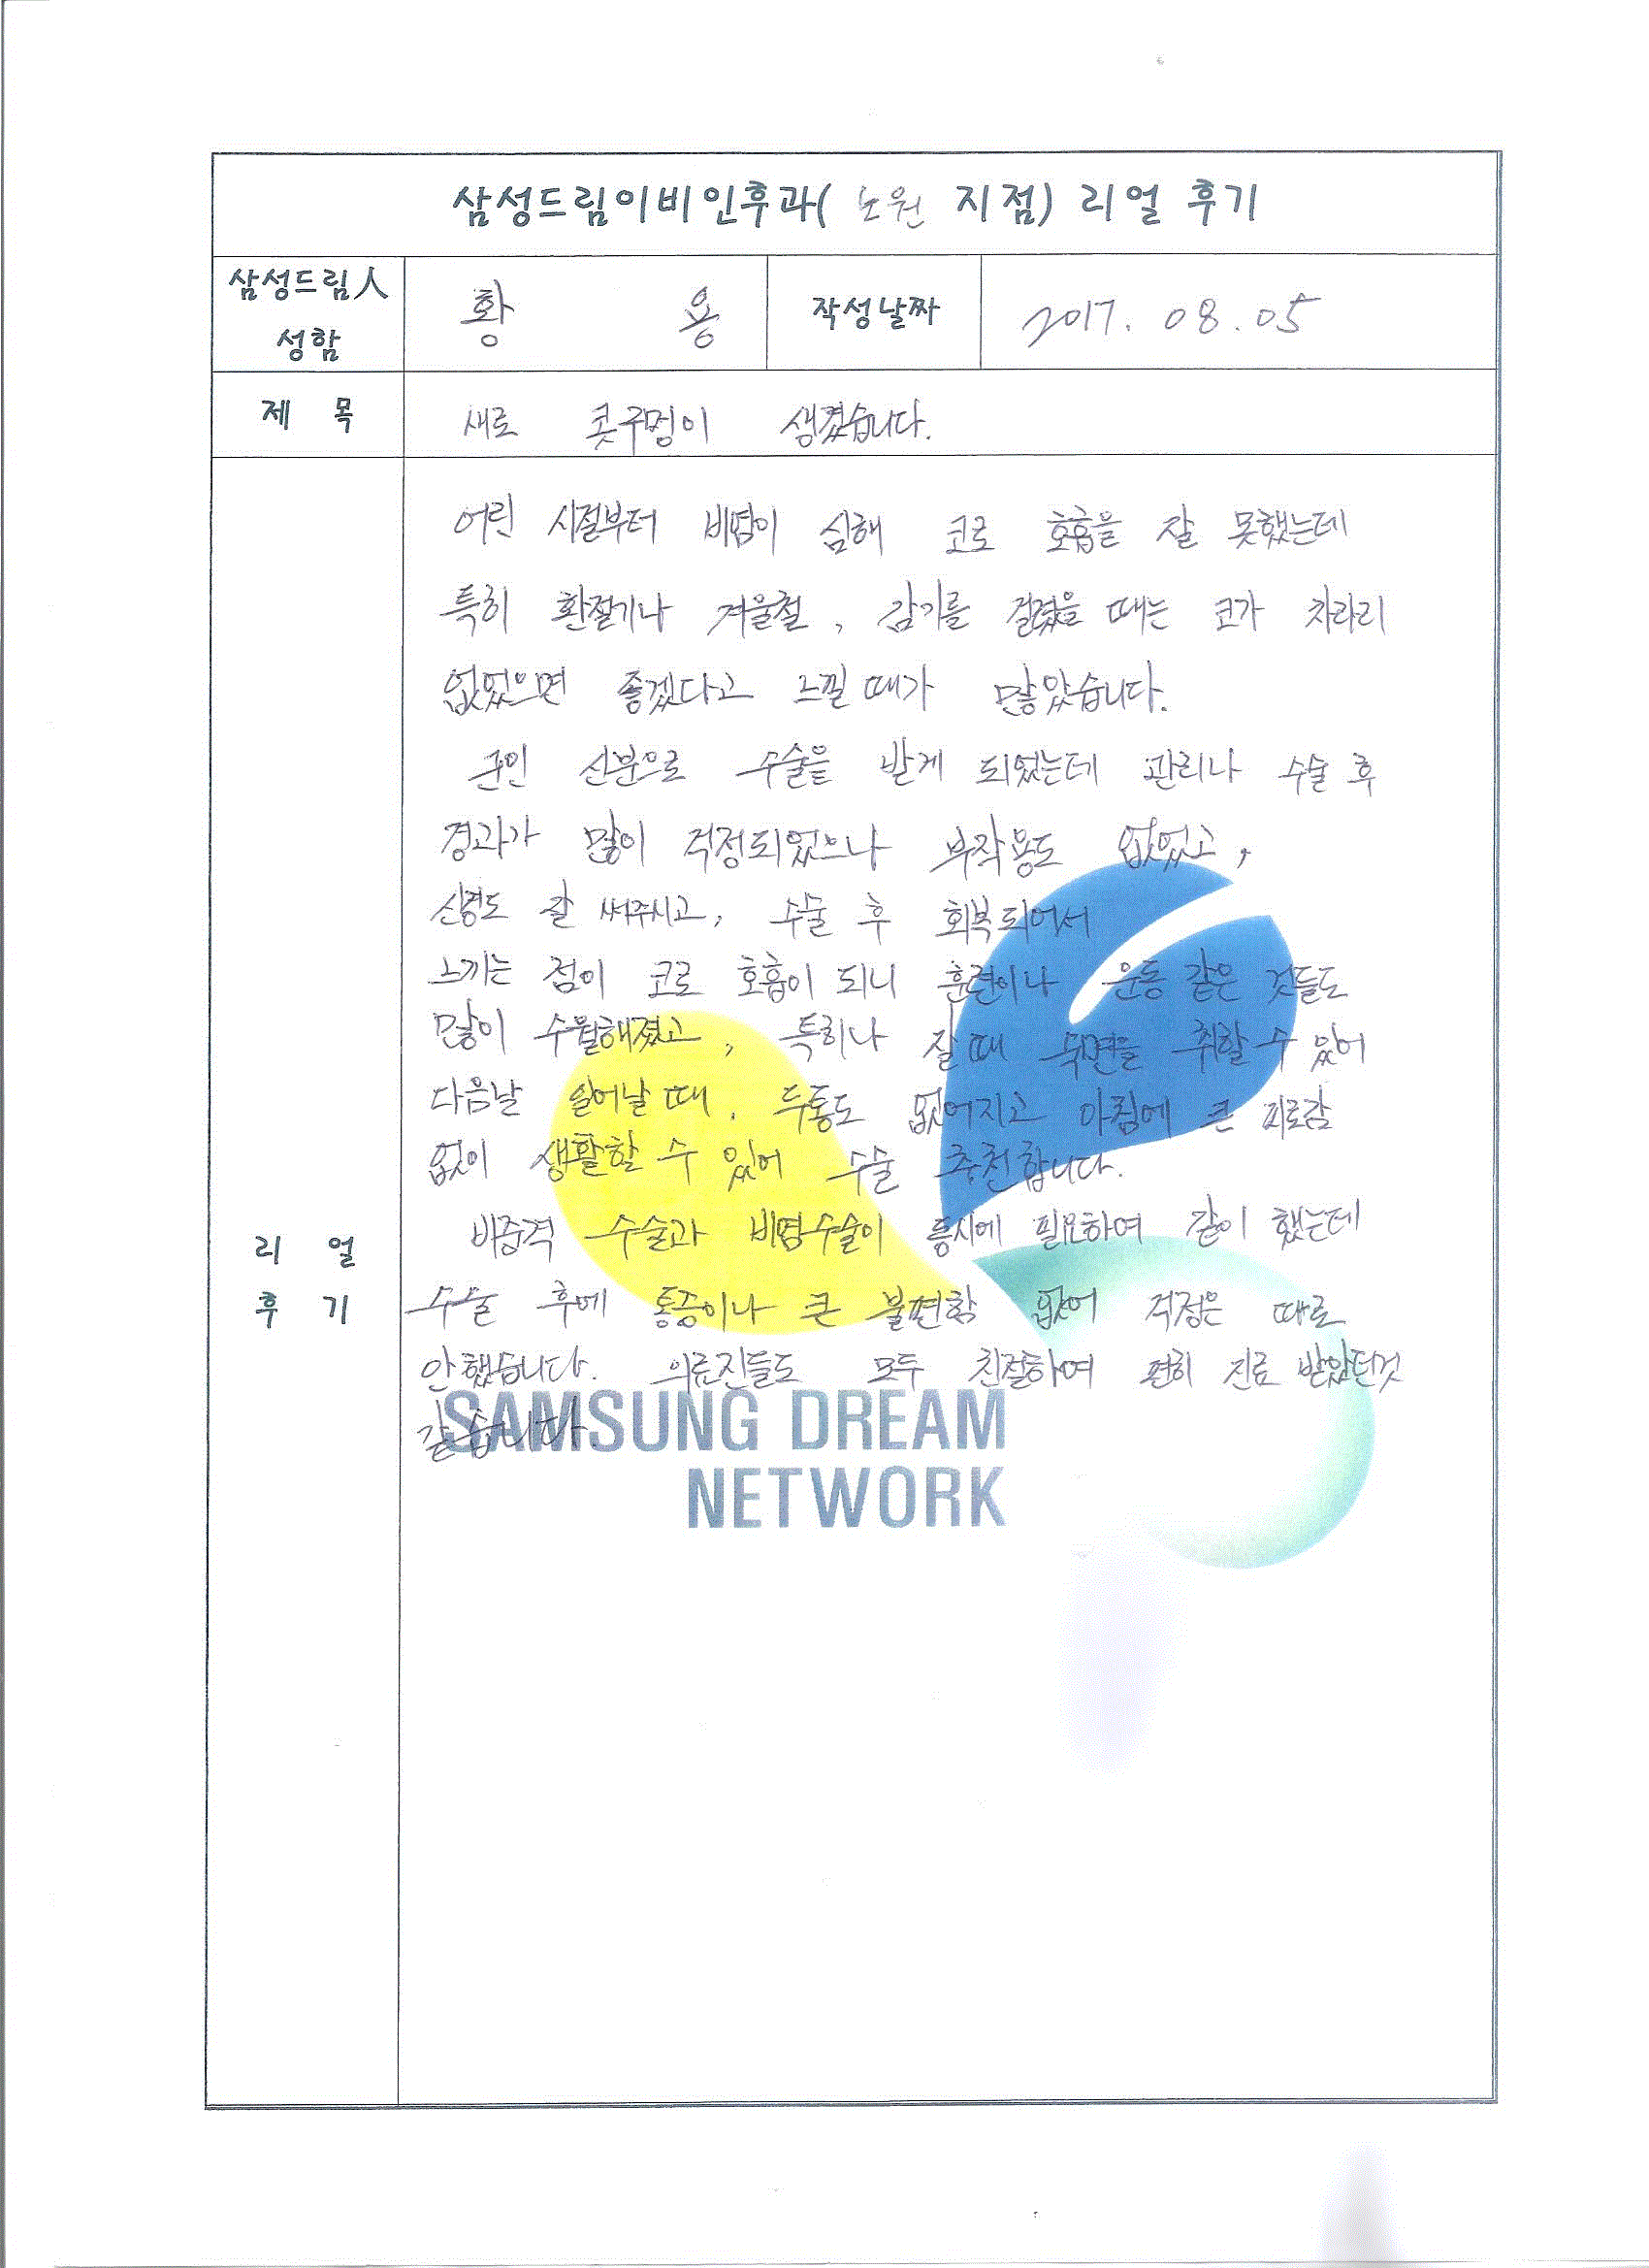 삼성드림이비인후과( 노원 지점) 리얼 후기
삼성드림人 성함
황 용
작성날짜
2017. 08. 05
제 목
새로 콧구멍이 생겼습니다.
어린 시절부터 비염이 심해 코로 호흡을 잘 못했는데
특히 환절기나 겨울철, 감기를 걸렸을 때는 코가 차라리
없었으면 좋겠다고 느낄 때가 많았습니다.
군인 신분으로 수술을 받게 되었는데 관리나 수술 후
경과가 많이 걱정되었으나 부작용도 없었고,
신경도 잘 써주시고, 수술 후 회복되어서
느끼는 점이 코로 호흡이 되니 훈련이나 운동 같은 것들도
많이 수월해졌고, 특히나 잘 때 숙면을 취할 수 있어
다음날 일어날 때, 두통도 없어지고 아침에 큰 피로감
없이 생활할 수 있어 수술 추천합니다.
비중격 수술과 비염수술이 동시에 필요하여 같이 했는데
수술 후에 통증이나 큰 불편함 없어 걱정은 따로
안했습니다. 의료진들도 모두 친절하여 편히 진료 받았던것
같습니다.
리 얼
후 기
SAMSUNG DREAM
NETWORK